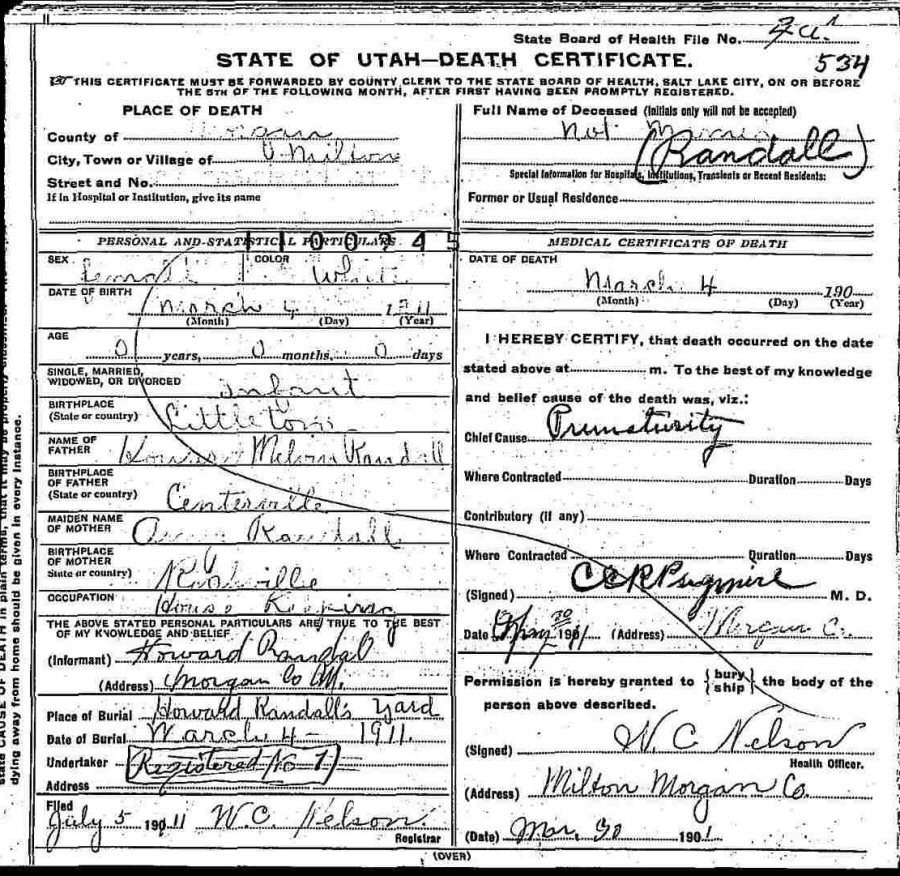 State Board of Health File No.
534
STATE OF UTAH—DEATH CERTIFICATE.
THIS CERTIFICATE MUST BE FORWARDED BY COUNTY CLERK TO THE STATE BOARD OF HEALTH, SALT LAKE CITY, ON OR BEFORE
THE 5TH OF THE FOLLOWING MONTH, AFTER FIRST HAVING BEEN PROMPTLY REGISTERED.
PLACE OF DEATH
County of Morgan
City, Town or Village of Milton
Street and No.
If in Hospital or Institution, give its name
Full Name of Deceased (Initials only will not be accepted)
Not
(Randall)
Special Information for Hospitals, Institutions, Transients or Recent Residents:
Former or Usual Residence
PERSONAL AND STATISTICAL PARTICULARS
1100745
SEX Female COLOR White
DATE OF BIRTH
March 4 1911
(Month) (Day) (Year)
AGE
0 years, 0 months, 0 days
SINGLE, MARRIED,
WIDOWED, OR DIVORCED Infant
BIRTHPLACE
(State or country) Littleton
NAME OF
FATHER Melvin Randall
BIRTHPLACE
OF FATHER
(State or country) Centerville
MAIDEN NAME
OF MOTHER Randall
BIRTHPLACE
OF MOTHER
State or country)
OCCUPATION House Keeping
THE ABOVE STATED PERSONAL PARTICULARS ARE TRUE TO THE BEST
OF MY KNOWLEDGE AND BELIEF
(Informant) Howard Randal
(Address) Morgan Co
Place of Burial Howard Randall's Yard
Date of Burial March 4 - 1911.
Undertaker (Registered No 7)
Address
Filed
July 5 1911 W.C. Nelson
Registrar
MEDICAL CERTIFICATE OF DEATH
DATE OF DEATH
March 4 190
(Month) (Day) (Year)
I HEREBY CERTIFY, that death occurred on the date
stated above at m. To the best of my knowledge
and belief cause of the death was, viz.:
Chief Cause Prematurity
Where Contracted Duration Days
Contributory (if any)
Where Contracted Duration Days
(Signed) M. D.
Date 1911 (Address) Morgan Co.
Permission is hereby granted to {bury ship} the body of the
person above described.
(Signed) W. C. Nelson
Health Officer.
(Address) Milton Morgan Co.
(Date) Mar, 30 1901
(OVER)
state CAUSE OF DEATH in plain terms, that it may be properly
dying away from home should be given in every instance.